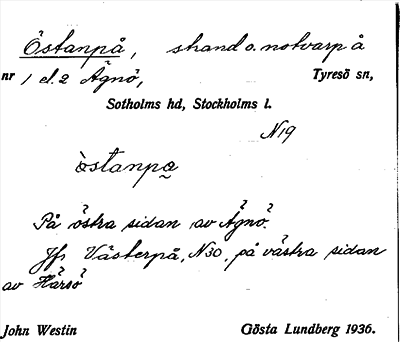 Östanpå, strand o. notvarp å
nr 1 el. 2 Ägnö, Tyresö sn,
Sotholms hd, Stockholms l.
N19
östanpå
På östra sidan av Ägnö.
Jfr Västerpå, N30, på västra sidan
av Härsö
John Westin Gösta Lundberg 1936.